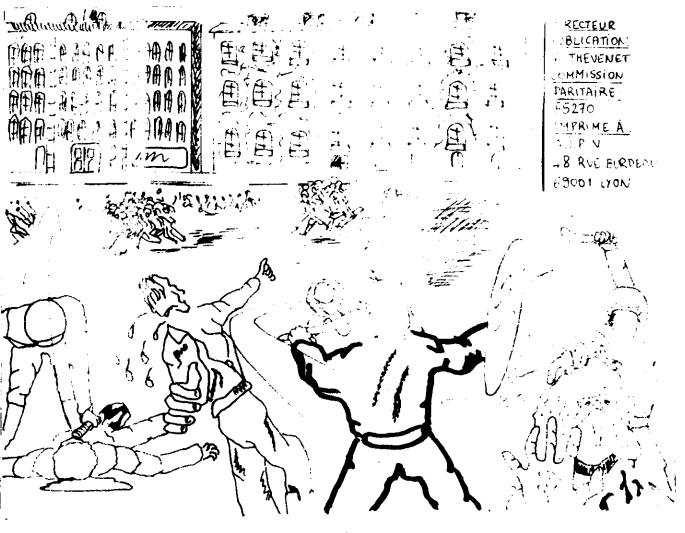 RECTEUR
BLICATION
THEVENET
OMMISSION
PARITAIRE
65270
MPRIME À
T P V
8 RUE BURDEAU
69001 LYON